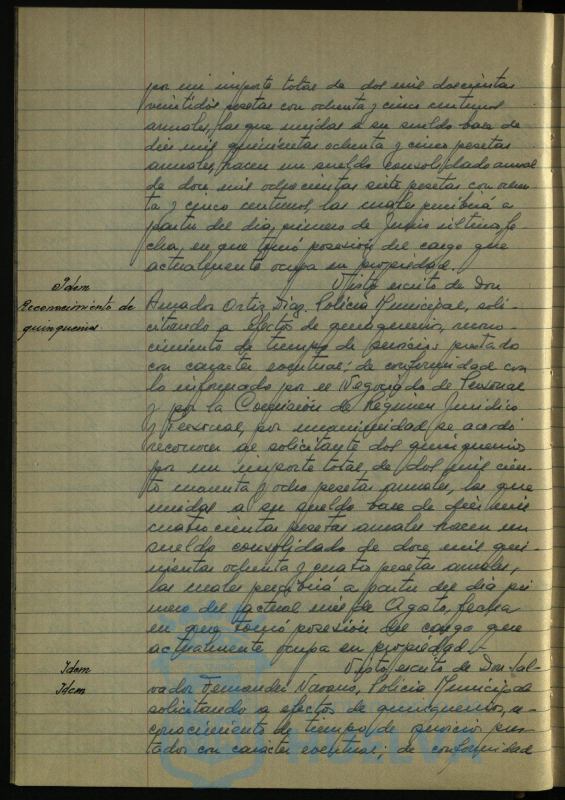 por un importe total de dos mil doscientas
veintidós pesetas con ochenta y cinco centimos
anuales, las que unidas a su sueldo base de
diez mil quinientas ochenta y cinco pesetas
anuales, hacen un sueldo consolidado anual
de doce mil ochocientas siete pesetas con ochen-
ta y cinco centimos, las cuales percibirá a
partir del dia primero de Junio ultimo, fe-
cha, en que tomó posesión del cargo que
actualmente ocupa en propiedad.
Idem
Reconocimiento de
quinquenios.
Visto escrito de Don
Amador Ortiz Diaz, Policia Municipal, soli-
citando a efectos de quinquenios, recono-
cimiento de tiempo de servicios prestado
con caracter eventual; de conformidad con
lo informado por el Negociado de Personal
y por la Comisión de Régimen Juridico
y Personal, por unanimidad se acordó
reconocer al solicitante dos quinquenios
por un importe total, de dos mil cien-
to ochenta y cuatro pesetas anuales, las que
unidas a su sueldo base de diez mil
cuatrocientas pesetas anuales hacen un
sueldo consolidado de doce mil qui-
nientas ochenta y cuatro pesetas anuales,
las cuales percibirá a partir del dia pri
mero del actual mes de Agosto, fecha
en que tomó posesión del cargo que
actualmente ocupa en propiedad.-
Idem
Idem
Visto escrito de Don Sal-
vador Fernandez Navarro, Policia Municipal
solicitando a efectos de quinquenios, re-
conocimiento de tiempo de servicios pres-
tados con carácter eventual; de conformidad
HUELVA